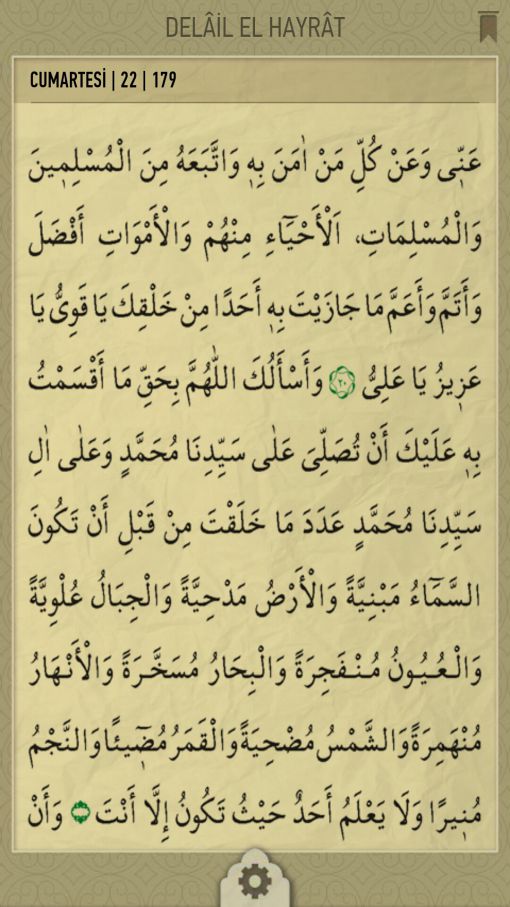 DELÂİL EL HAYRÂT
CUMARTESİ | 22 | 179
عَنّ۪ى وَعَنْ كُلِّ مَنْ اٰمَنَ بِه۪ وَاتَّبَعَهُ مِنَ الْمُسْلِم۪ينَ
وَالْمُسْلِمَاتِ، اَلْأَحْيَٓاءِ مِنْهُمْ وَالْأَمْوَاتِ أَفْضَلَ
وَأَتَمَّ وَأَعَمَّ مَا جَازَيْتَ بِه۪ أَحَدًا مِنْ خَلْقِكَ يَا قَوِىُّ يَا
عَز۪يزُ يَا عَلِىُّ ﴿٢٠﴾ وَأَسْأَلُكَ اللّٰهُمَّ بِحَقِّ مَا أَقْسَمْتُ
بِه۪ عَلَيْكَ أَنْ تُصَلِّىَ عَلٰى سَيِّدِنَا مُحَمَّدٍ وَعَلٰى اٰلِ
سَيِّدِنَا مُحَمَّدٍ عَدَدَ مَا خَلَقْتَ مِنْ قَبْلِ أَنْ تَكُونَ
السَّمَٓاءُ مَبْنِيَّةً وَالْأَرْضُ مَدْحِيَّةً وَالْجِبَالُ عُلْوِيَّةً
وَالْعُيُونُ مُنْفَجِرَةً وَالْبِحَارُ مُسَخَّرَةً وَالْأَنْهَارُ
مُنْهَمِرَةً وَالشَّمْسُ مُضْحِيَةً وَالْقَمَرُ مُض۪ٓيئًا وَالنَّجْمُ
مُن۪يرًا وَلَا يَعْلَمُ أَحَدٌ حَيْثُ تَكُونُ إِلَّا أَنْتَ وَأَنْ